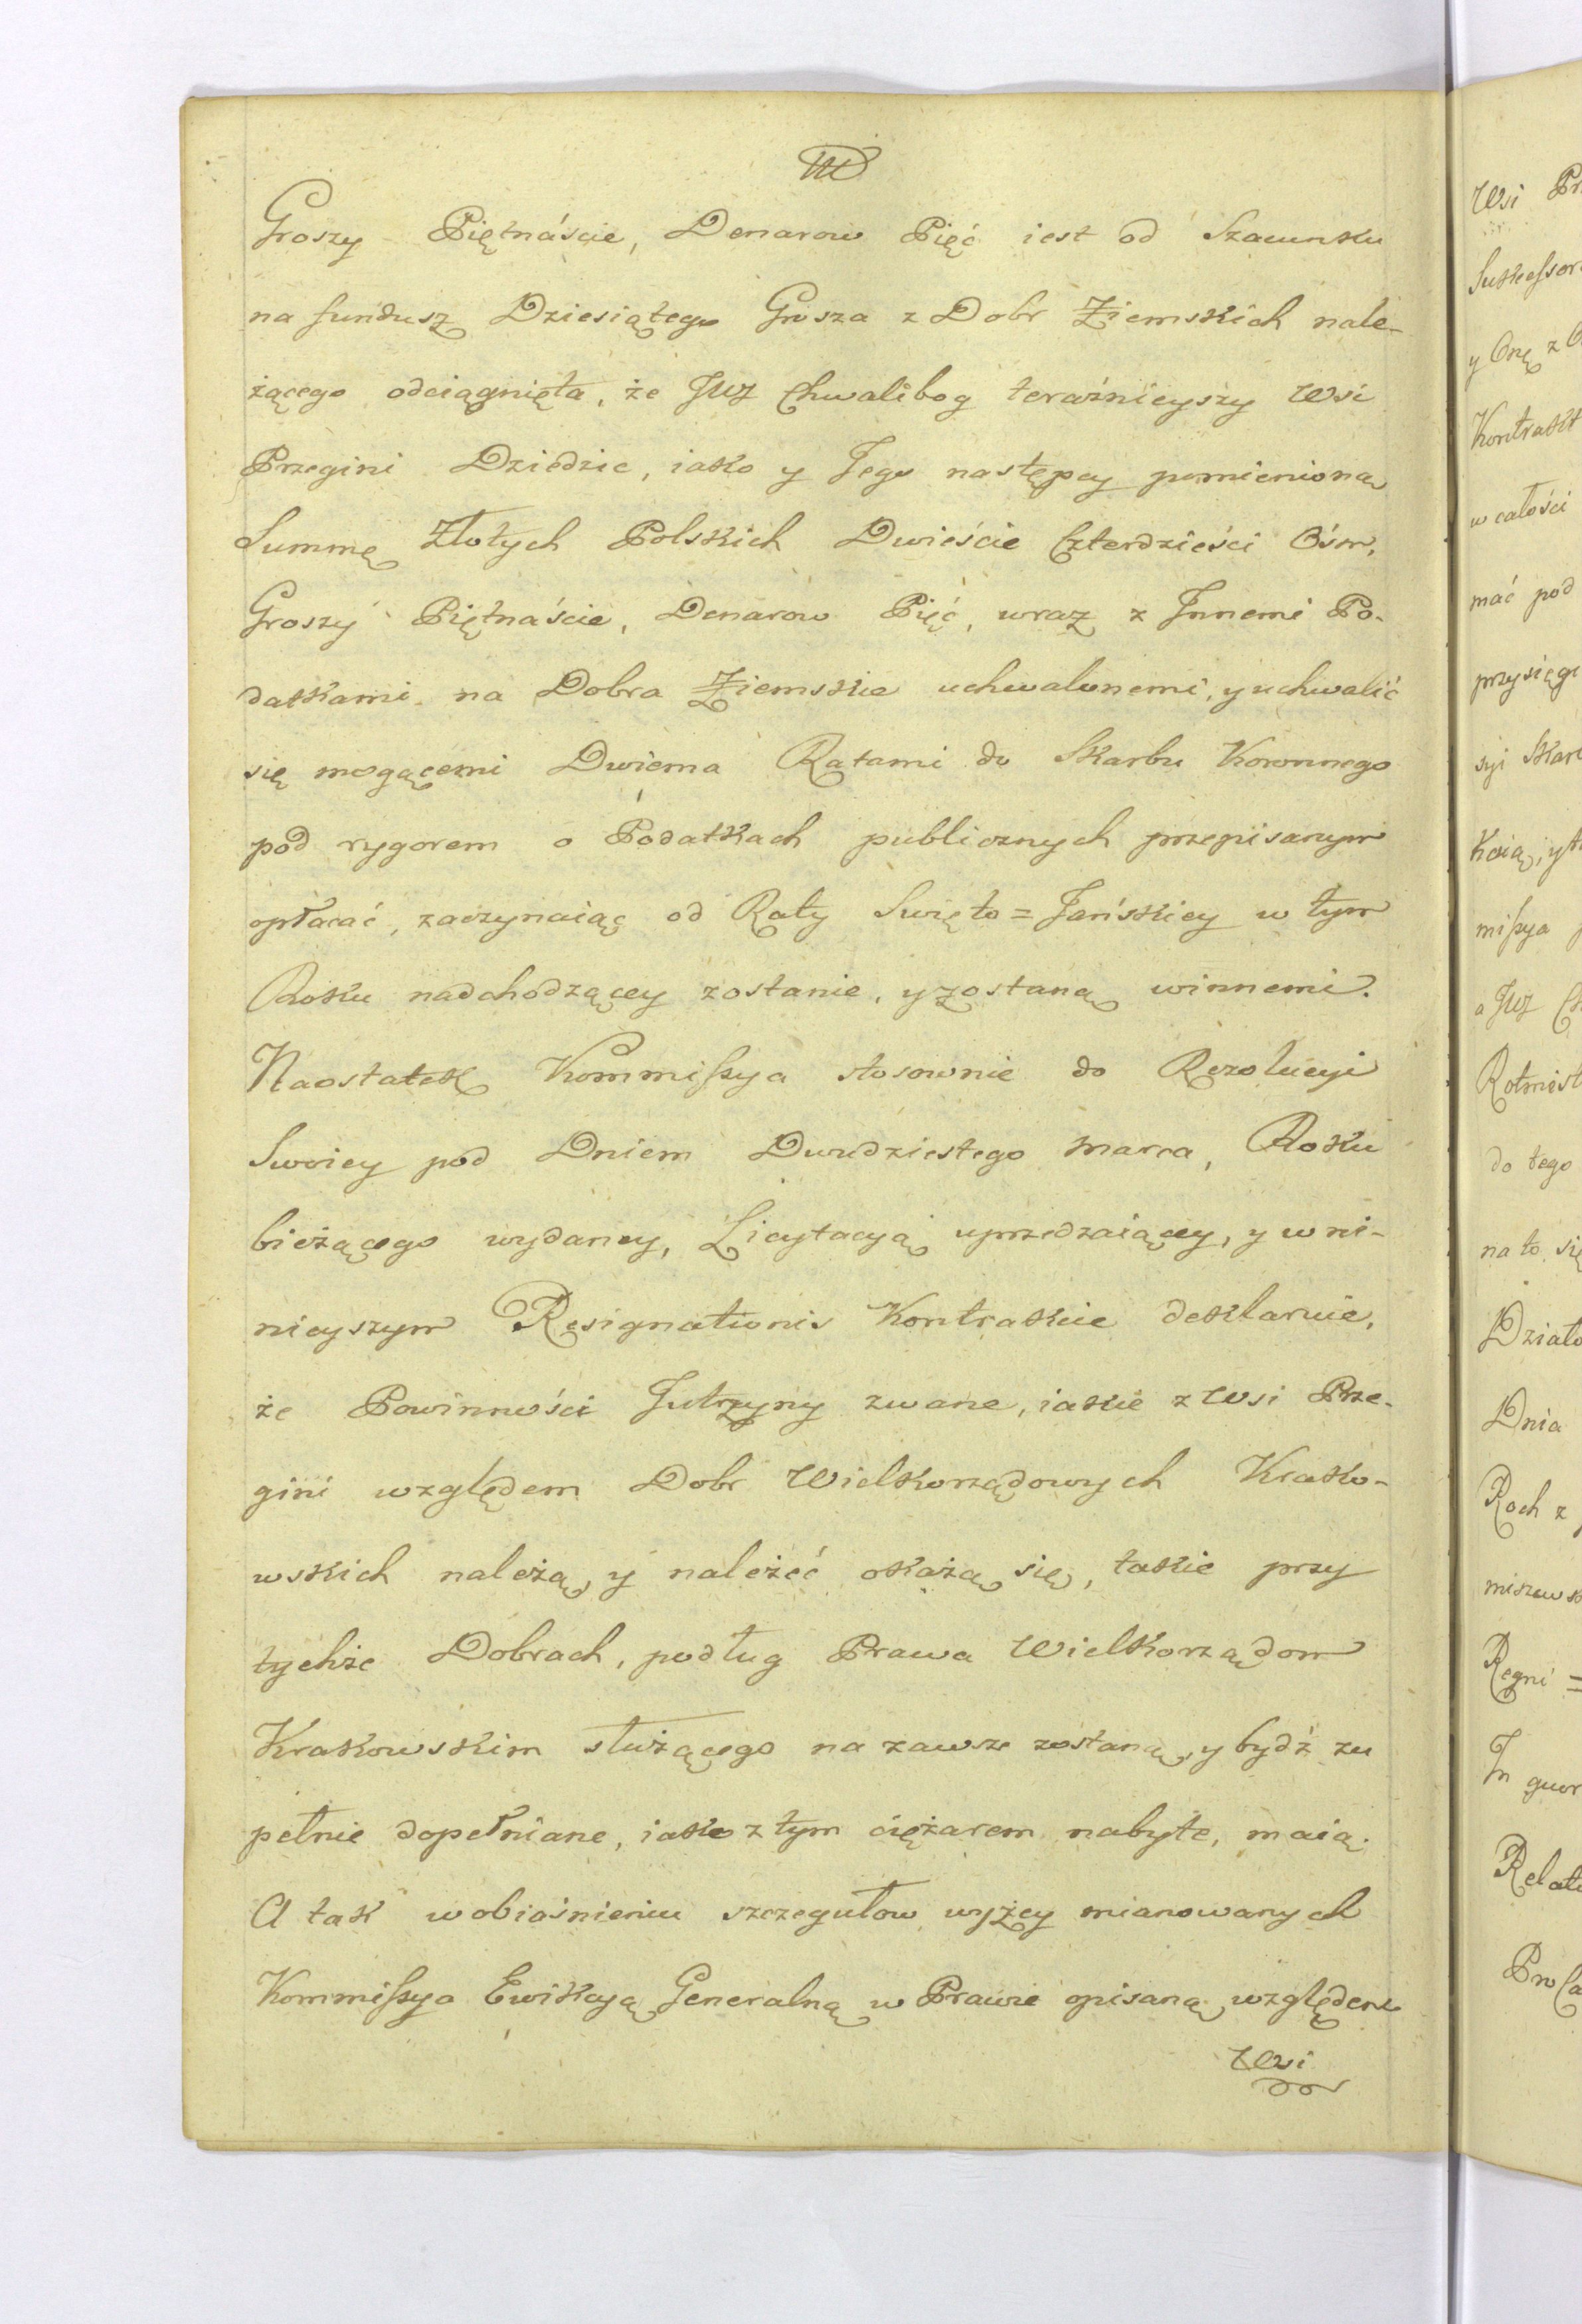 Groszy Piętnáście, Denarow Pięć iest od Szacunku
na fundusz Dziesiątego Grosza z Dobr Ziemskich nale-
żącego odciągnięta, że JWJ Chwalibog teraźnieyszy Wsi
Przegini Dziedzic, iako y Jego następcy pomienioną
Summę Złotych Polskich Dwieście Czterdzieści Ośm,
Groszy Piętnaście, Denarow Pięć, wraz z Innemi Po-
datkami na Dobra Ziemskie uchwalonemi, y uchwalić
się mogącemi Dwiema Ratami do Skarbu Koronnego
pod rygorem o Podatkach publicznych przepisanym
opłacać, zaczynaiąc od Raty Swięto=Jańskiey w tym
Roku nadchodzącey zostanie, y zostaną winnemi.
Naostatek Kommissya stosownie do Rezolucyi
Swoiey pod Dniem Dwudziestego Marca, Roku
bieżącego wydaney, Licytacyą uprzedzaiącey, y w ni-
nieyszym Resignationis Kontrakcie deklaruie,
że Powinności Jutrzyny zwane, iakie z Wsi Prze-
gini względem Dobr Wielkorządowych Krako-
wskich należą, y należeć okażą się, takie przy
tychże Dobrach, podług Prawa Wielkorządom
Krakowskim służącego na zawsze zostaną, y bydź zu
pełnie dopełniane, iako z tym ciężarem nabyte, maią.
A tak w obiaśnieniu szczegułow wyżey mianowanych
Kommissya Ewikcyą Generalną w Prawie opisaną względem
Wsi
Wsi Pr
Sukcessor
y Onę z
Kontrakt
w całości
mać pod
przysięg
syi Skar
missya
a JWJ Ch
Rotmist
do tego
na to się
Działo
Dnia
Roch z
miszews
Regni =
In quor
Relat